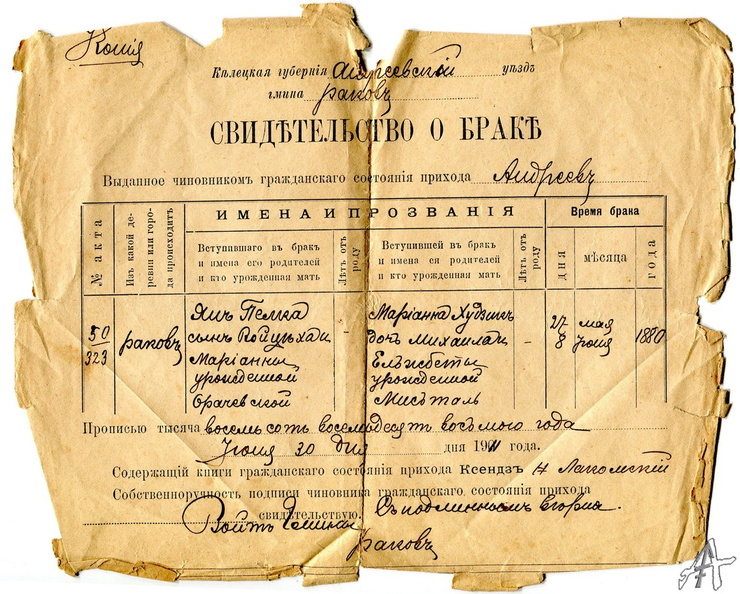 Копія
Кѣлецкая губернія Андреевскій уѣздъ
гмина раковъ
СВИДѢТЕЛЬСТВО О БРАКѢ
Выданное чиновникомъ гражданскаго состоянія прихода Андреевъ
№ акта
Изъ какой деревни или города происходитъ
ИМЕНА И ПРОЗВАНІЯ
Время брака
Вступившаго въ бракъ
и имена его родителей
и кто урожденная мать
Лѣтъ отъ роду
Вступившей въ бракъ
и имена ея родителей
и кто урожденная мать
Лѣтъ отъ роду
дня
мѣсяца
года
50
323
раковъ
Янъ
сынъ Войцѣха и
Маріанны
урожденной
-
Маріанна
дочь Михаила и
Ельжбеты
урожденной
-
27 мая
8 Іюня
1880
Прописью тысяча восемь сотъ восемьдесятъ восьмого года
Іюня 30 дня дня 1911 года.
Содержащій книги гражданскаго состоянія прихода Ксендзъ
Собственноручность подписи чиновника гражданскаго состоянія прихода
свидѣтельствую. Съ подлиннымъ вѣрно.
Войтъ Гмины
Раковъ